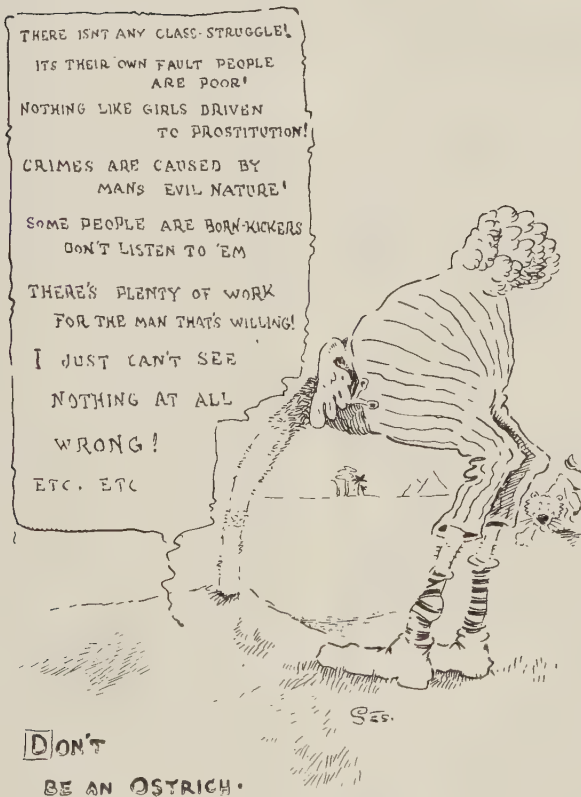 THERE ISNT ANY CLASS-STRUGGLE!
ITS THEIR OWN FAULT PEOPLE
ARE POOR!
NOTHING LIKE GIRLS DRIVEN
TO PROSTITUTION!
CRIMES ARE CAUSED BY
MANS EVIL NATURE!
SOME PEOPLE ARE BORN-KICKERS
DON'T LISTEN TO 'EM
THERE'S PLENTY OF WORK
FOR THE MAN THAT'S WILLING!
I JUST CAN'T SEE
NOTHING AT ALL
WRONG!
ETC. ETC
SES.
DON'T
BE AN OSTRICH.